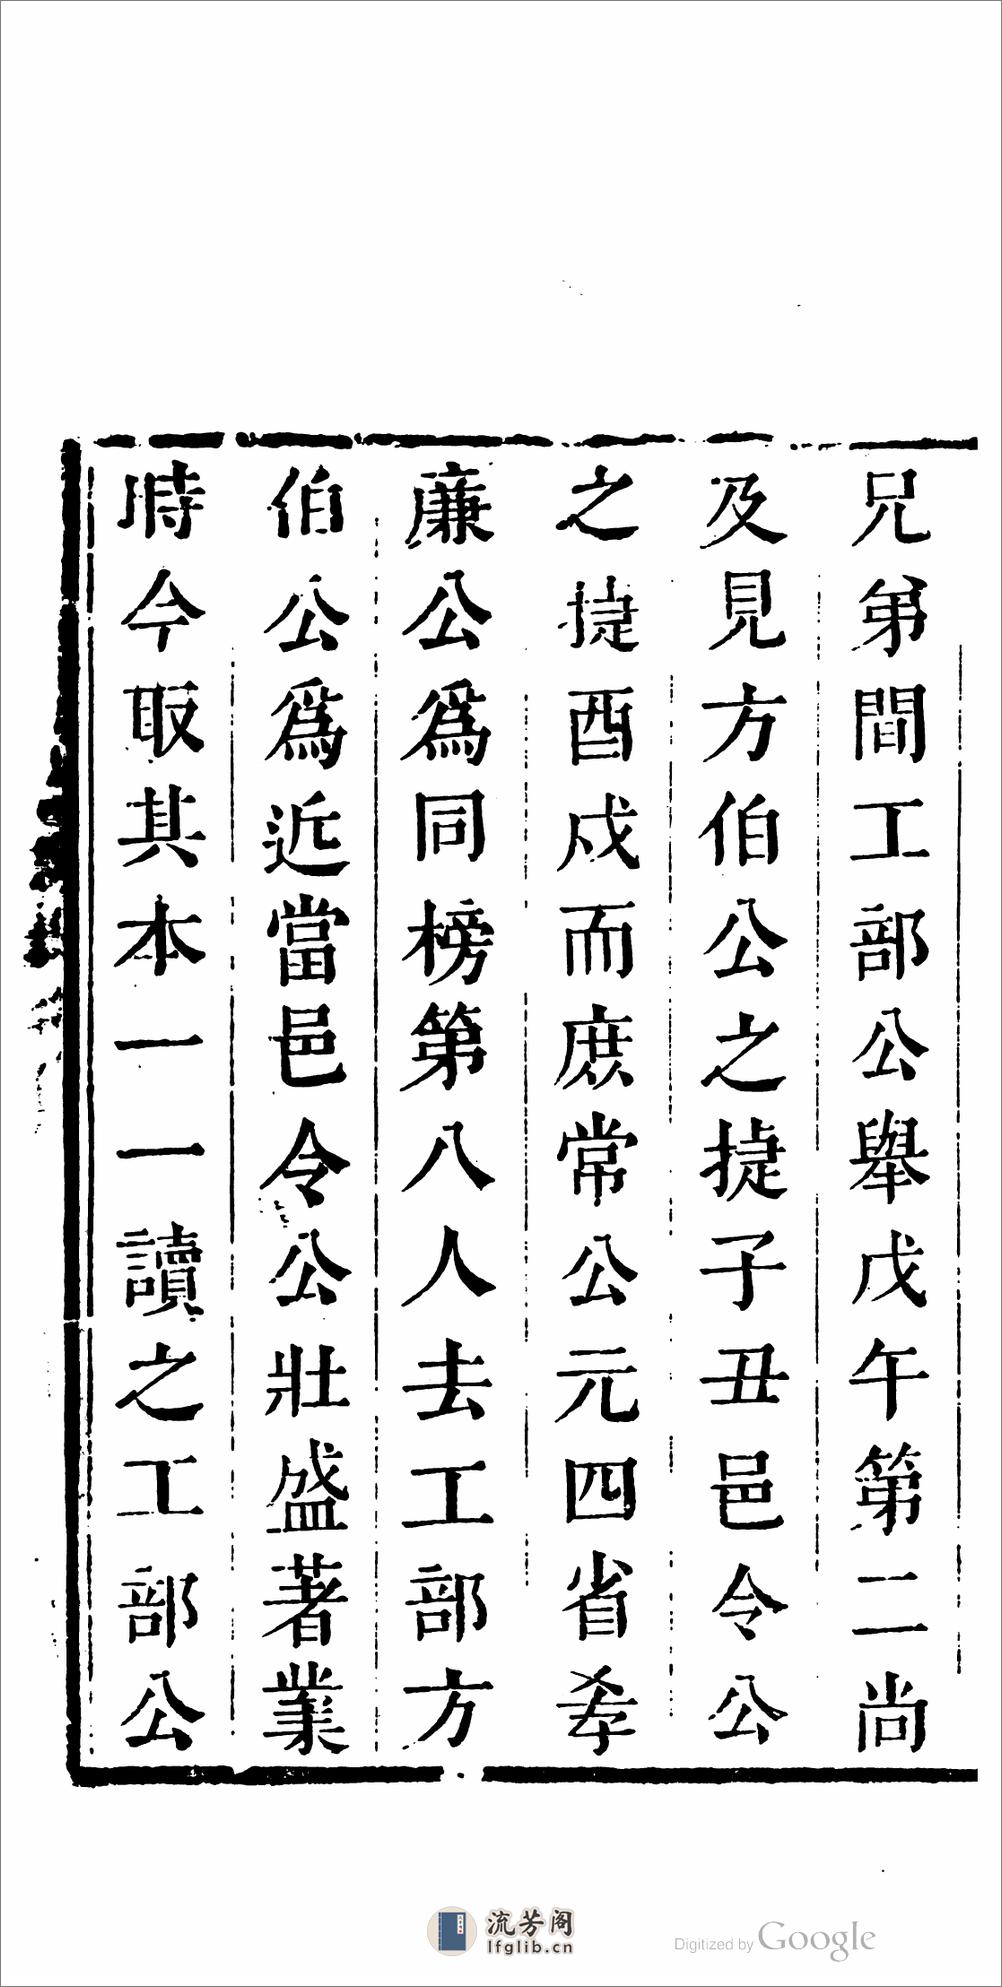 兄弟間工部公舉戊午第二尚
及見方伯公之捷子丑邑令公
之捷酉戍而庶常公元四省孝
廉公爲同榜第八人去工部方
伯公爲近當邑令公壯盛著業
時今取其本一一讀之工部公
流芳阁
lfglib.cn
Digitized by Google